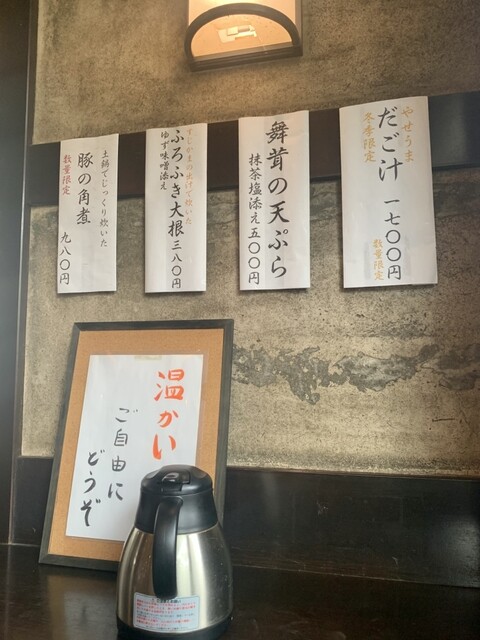 やせうま
だご汁 一七〇〇円
冬季限定
数量限定
舞茸の天ぷら
抹茶塩添え五〇〇円
ふろふき大根 三八〇円
ゆず味噌添え
土鍋でじっくり炊いた
豚の角煮 九八〇円
数量限定
温かい
ご自由に
どうぞ